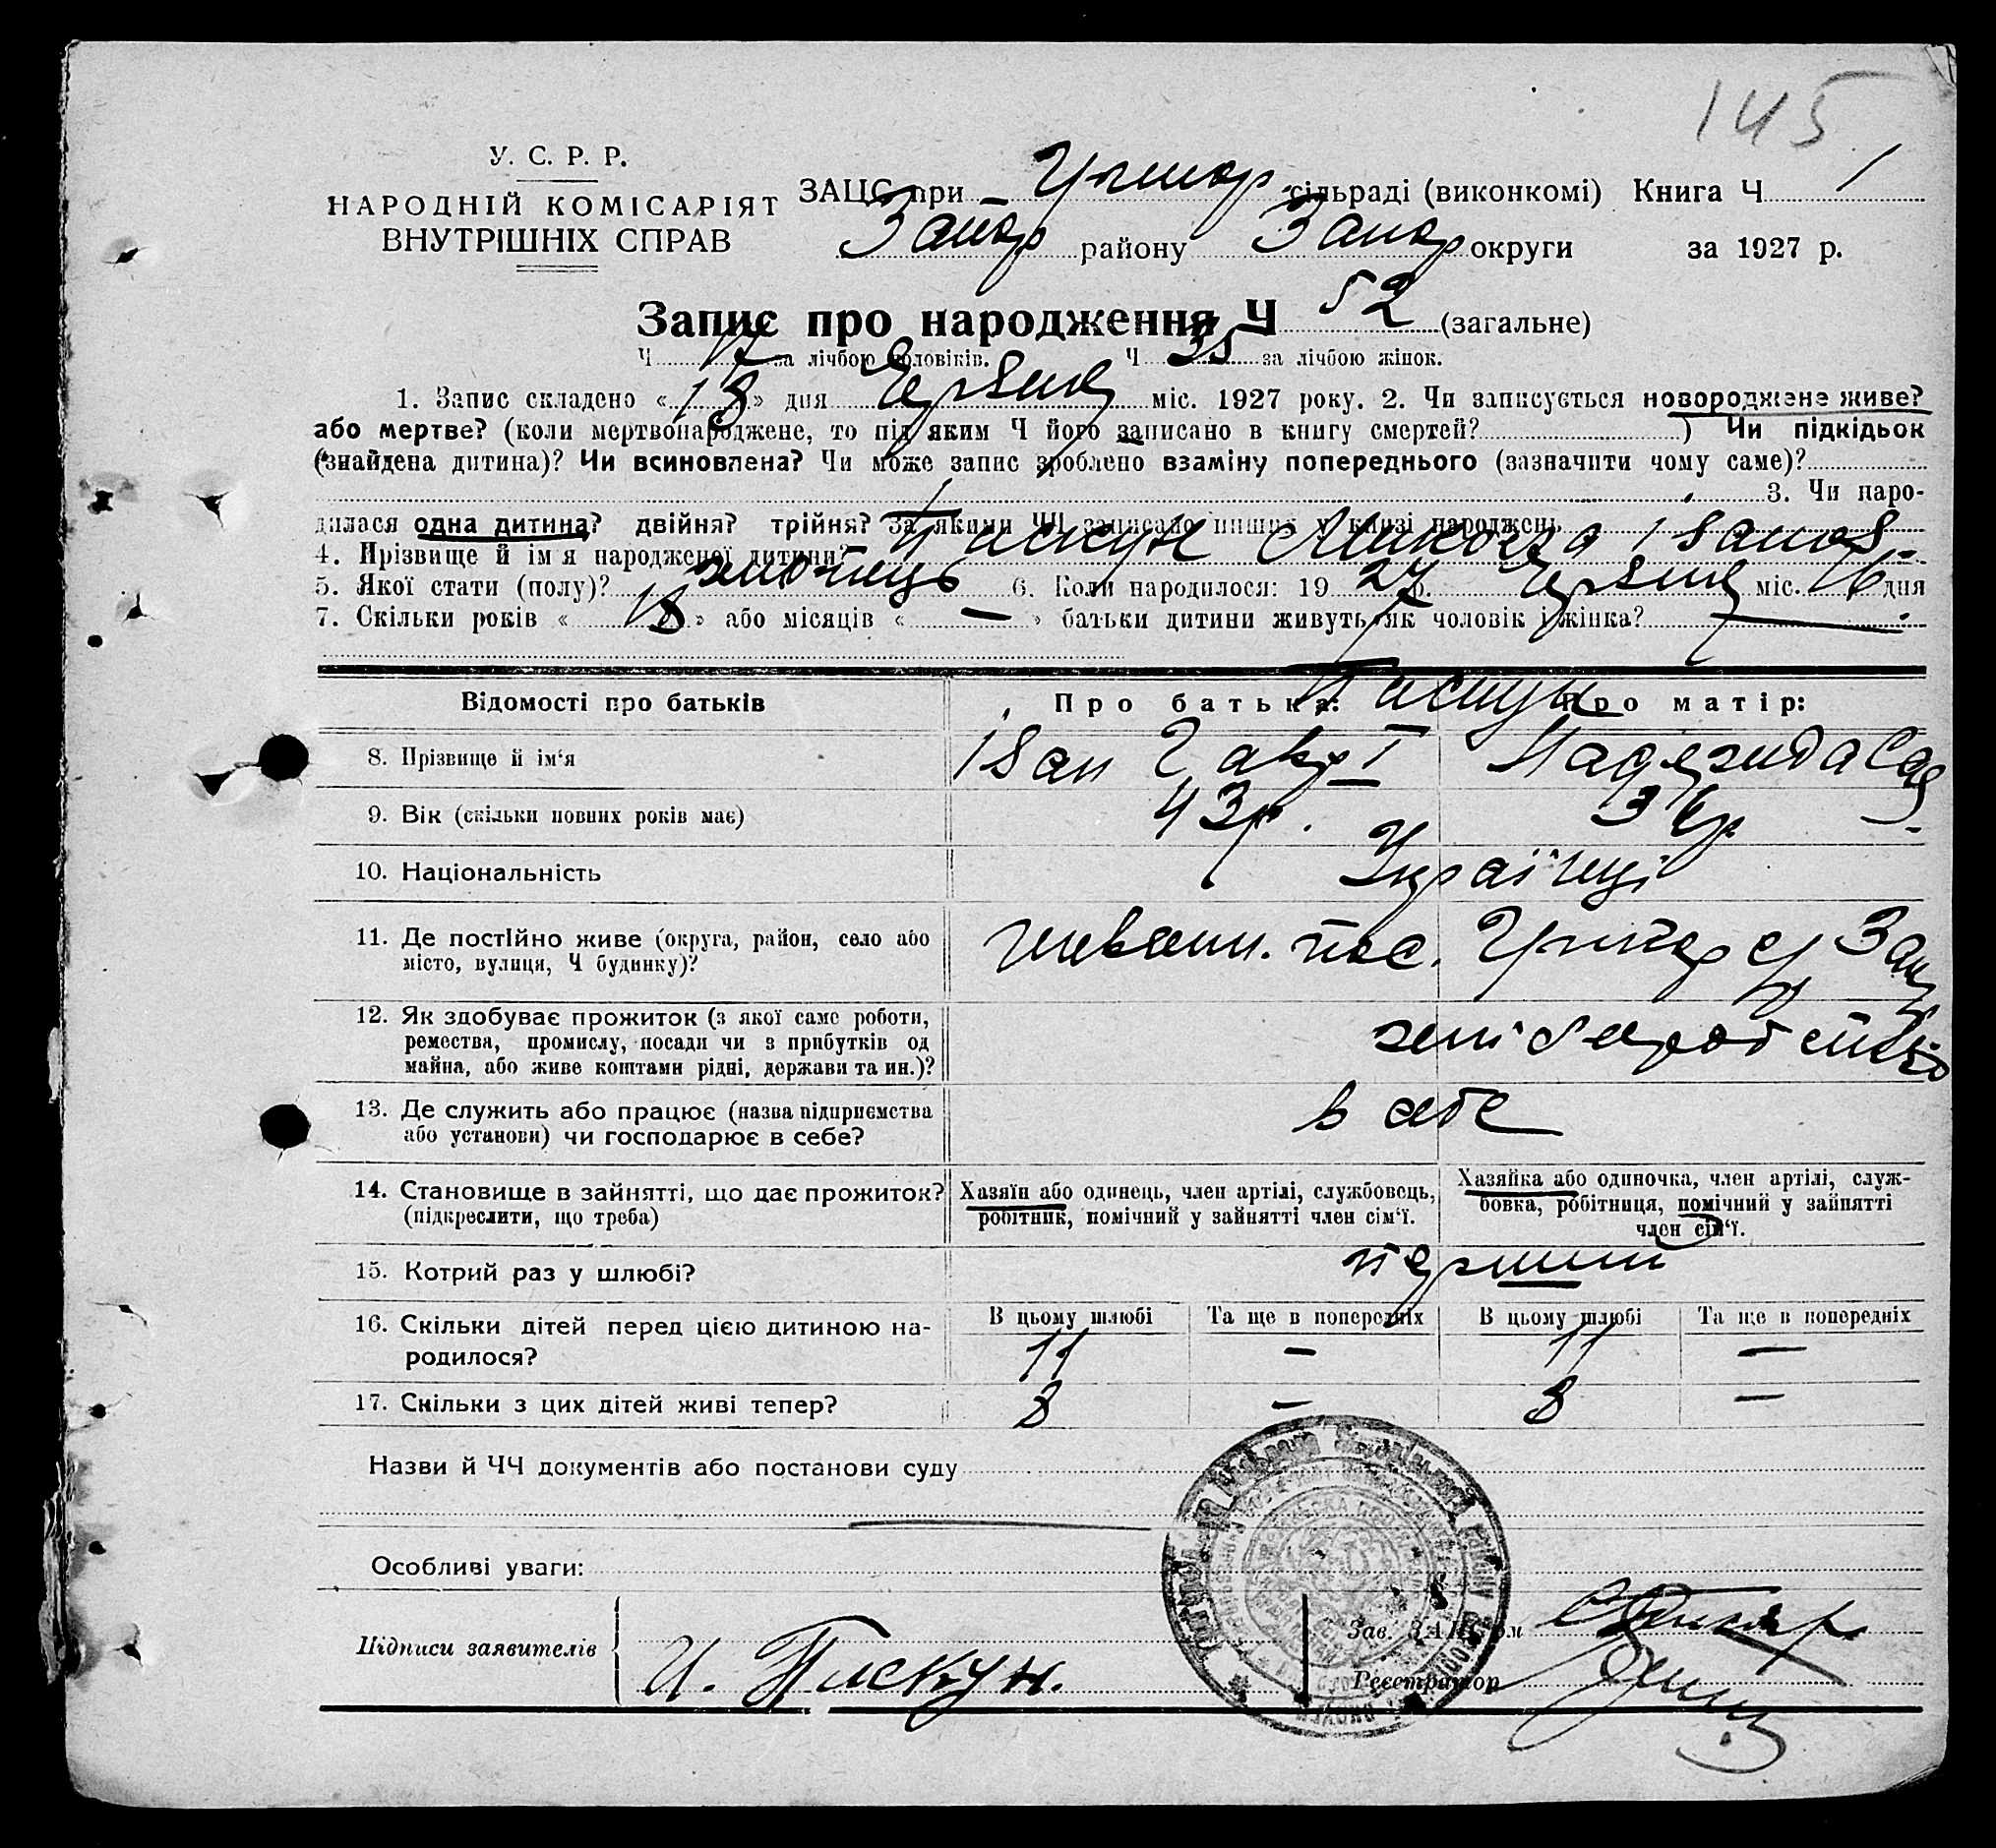 145
У. С. Р. Р.
НАРОДНІЙ КОМІСАРІЯТ
ВНУТРІШНІХ СПРАВ
ЗАЦС при сільраді (виконкомі) Книга Ч 1
Запор району Запор округи за 1927 р.
Запис про народження Ч 52 (загальне)
Ч 17 за лічбою чоловіків. Ч 35 за лічбою жінок.
1. Запис складено «18» дня Червня міс. 1927 року. 2. Чи записується новороджене живе?
або мертве? (коли мертвонароджене, то під яким Ч його записано в книгу смертей? ) Чи підкідьок
(знайдена дитина)? Чи всиновлена? Чи може запис зроблено взаміну попереднього (зазначити чому саме)?
3. Чи наро-
дилася одна дитина? двійня? трійня? За якими ЧЧ записано инших у книзі народжень
4. Прізвище й ім'я народженої дитини? Пискун Микола Іванов
5. Якої стати (полу)? хлопець 6. Коли народилося: 1927 р. Червня міс. 16 дня
7. Скільки років «18» або місяців « — » батьки дитини живуть як чоловік і жінка? —
Відомості про батьків Про батька: Пискун Про матір:
8. Прізвище й ім'я Іван Гавр Надежида Сав
9. Вік (скільки повних років має) 43 р. 36 р
10. Національність Українці
11. Де постійно живе (округа, район, село або
місто, вулиця, Ч будинку)? пос.
12. Як здобуває прожиток (з якої саме роботи,
ремества, промислу, посади чи з прибутків од
майна, або живе коштами рідні, держави та ин.)? хліборобство
13. Де служить або працює (назва підприємства
або установи) чи господарює в себе? в себе
14. Становище в зайнятті, що дає прожиток?
(підкреслити, що треба)
Хазяїн або одинець, член артілі, службовець,
робітник, помічний у зайнятті член сім'ї.
Хазяйка або одиночка, член артілі, служ-
бовка, робітниця, помічний у зайнятті
член сім'ї.
15. Котрий раз у шлюбі? перший
В цьому шлюбі Та ще в попередніх В цьому шлюбі Та ще в попередніх
16. Скільки дітей перед цією дитиною на-
родилося? 11 — 11 —
17. Скільки з цих дітей живі тепер? 8 — 8 —
Назви й ЧЧ документів або постанови суду
Особливі уваги:
Підписи заявителів
И. Пискун.
Зав. ЗАЦС'ом
Реєстратор